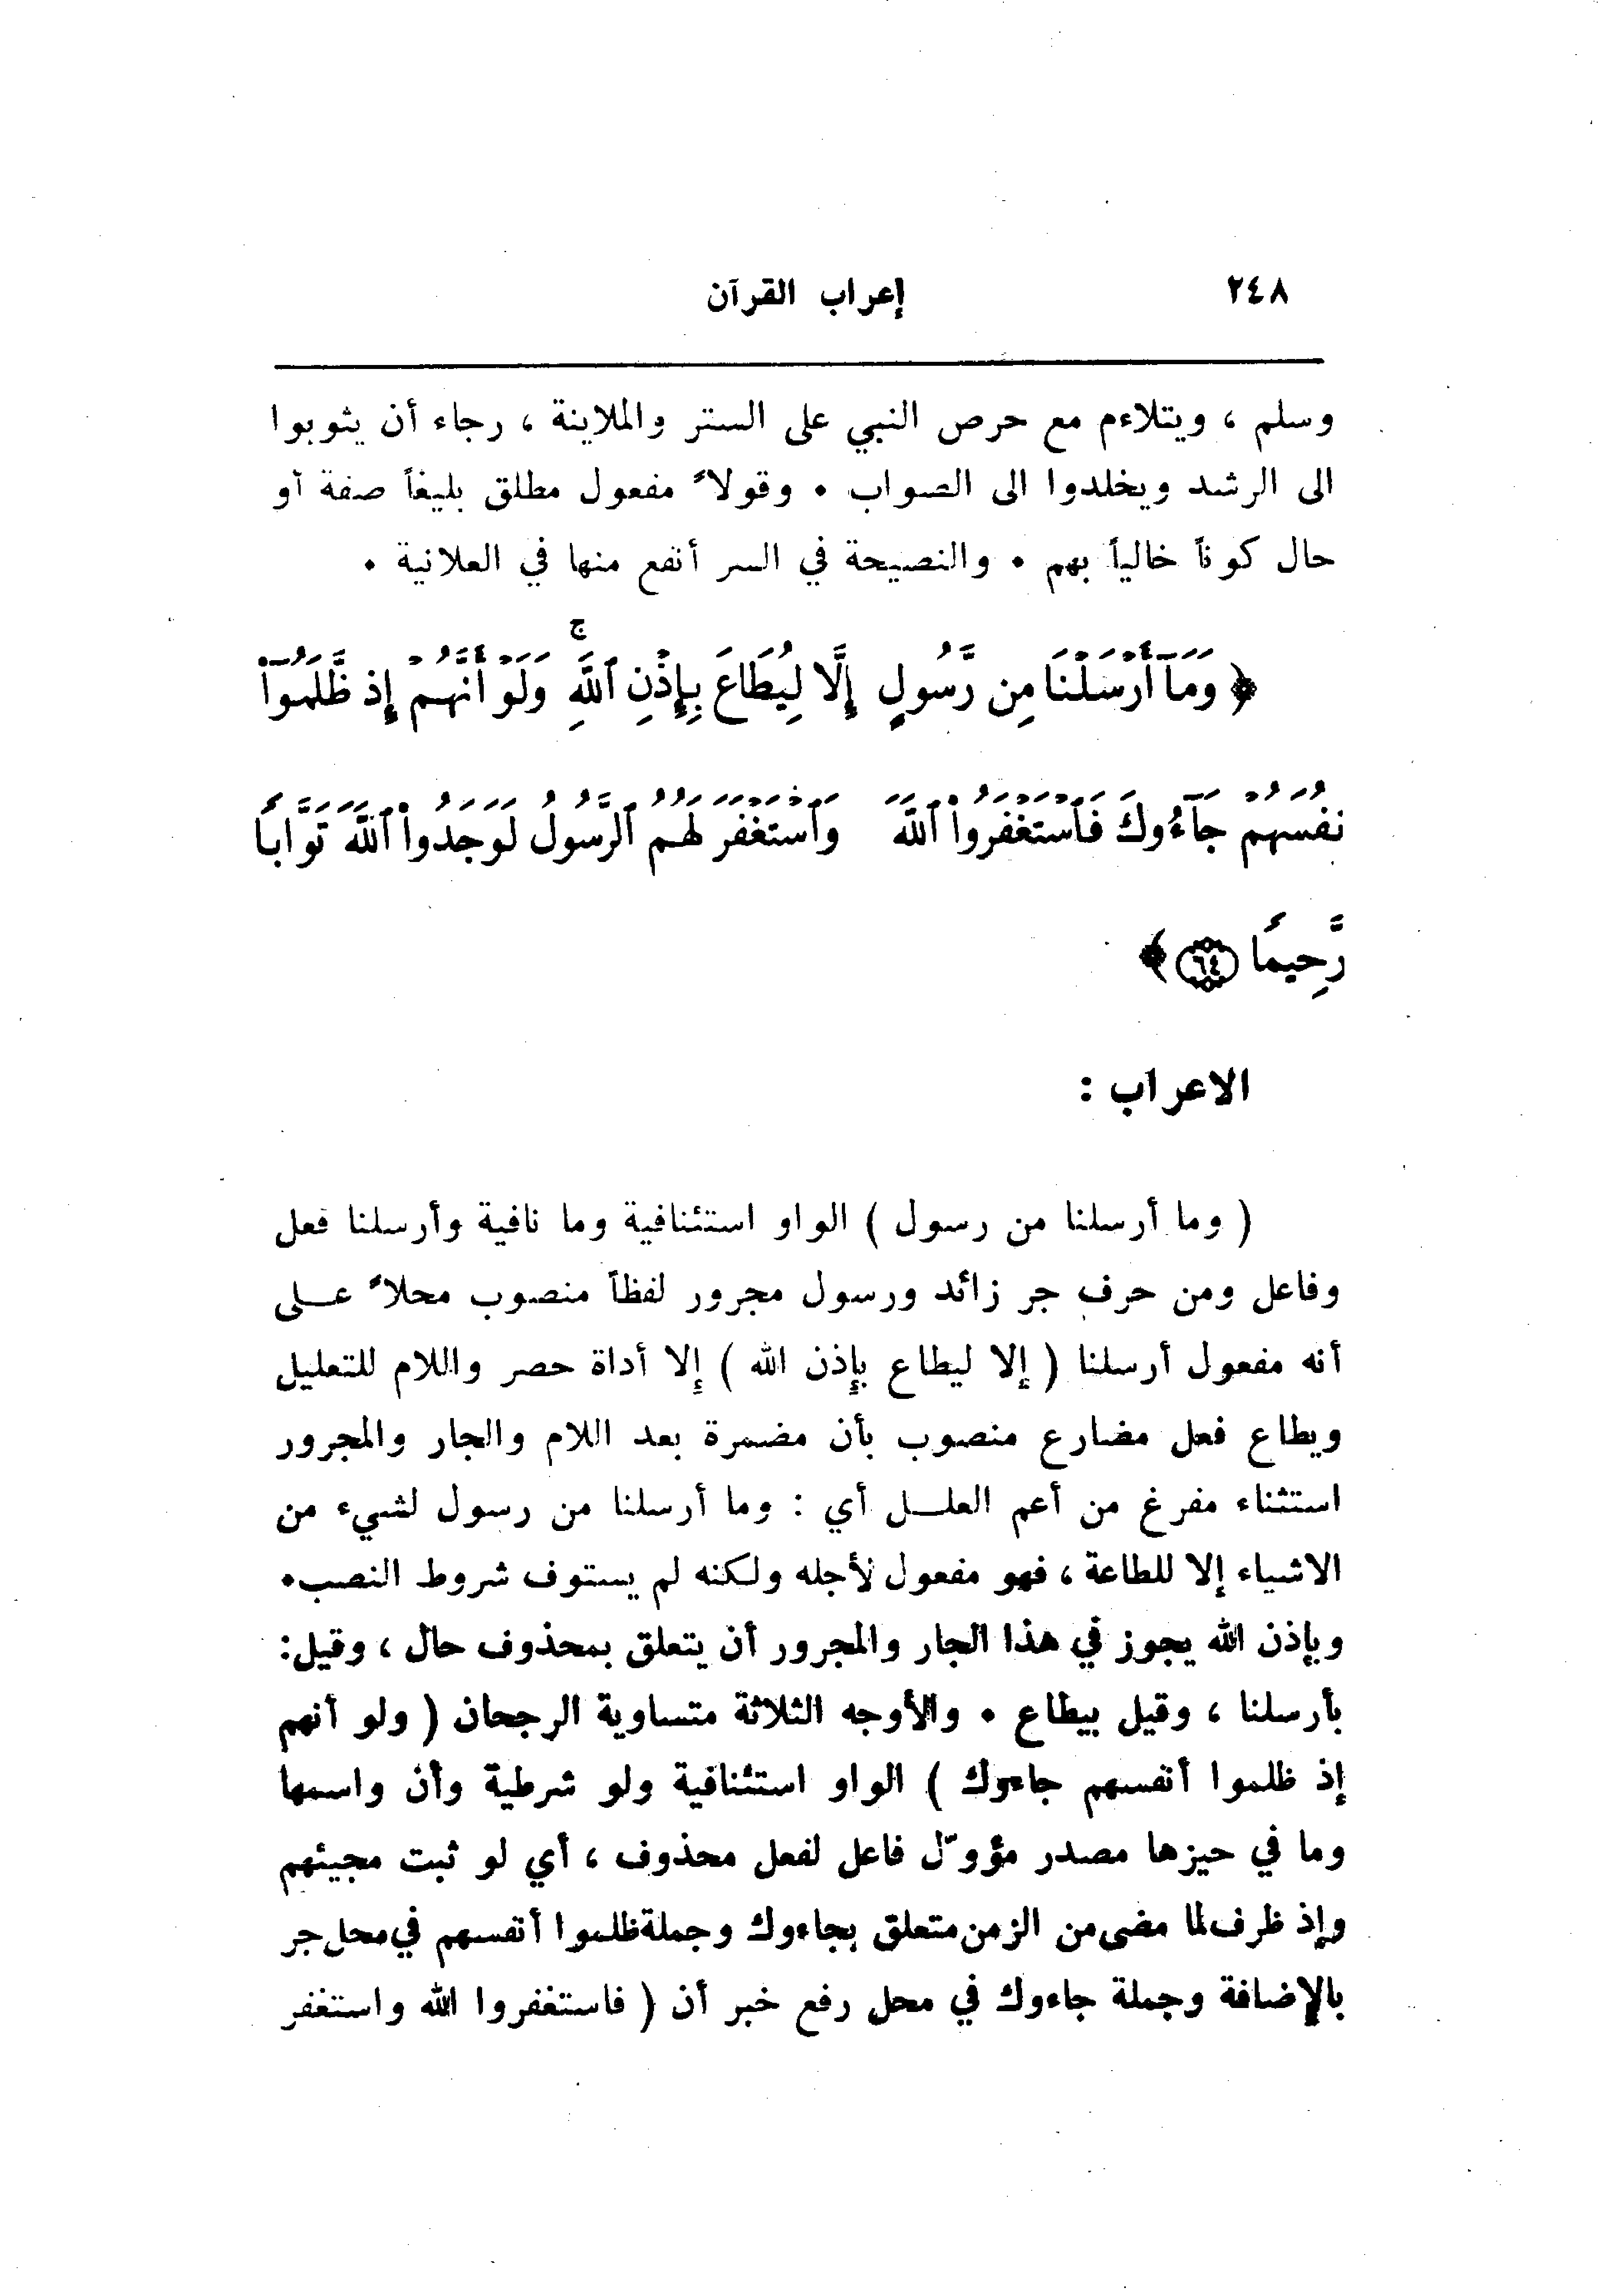 ٢٤٨ إعراب القرآن
وسلم ، ويتلاءم مع حرص النبي على الستر والملاينة ، رجاء أن يثوبوا
الى الرشد ويخلدوا الى الصواب . وقولاً مفعول مطلق بليغاً صفة أو
حال كوناً خالياً بهم . والنصيحة في السر أنفع منها في العلانية .
﴿ وَمَآ أَرْسَلْنَا مِن رَّسُولٍ إِلَّا لِيُطَاعَ بِإِذْنِ ٱللَّهِ ۚ وَلَوْ أَنَّهُمْ إِذ ظَّلَمُوٓا۟
نفُسَهُمْ جَآءُوكَ فَٱسْتَغْفَرُوا۟ ٱللَّهَ وَٱسْتَغْفَرَ لَهُمُ ٱلرَّسُولُ لَوَجَدُوا۟ ٱللَّهَ تَوَّابًا
رَّحِيمًا ٦٤ ﴾
الاعراب :
( وما أرسلنا من رسول ) الواو استئنافية وما نافية وأرسلنا فعل
وفاعل ومن حرف جر زائد ورسول مجرور لفظاً منصوب محلاً على
أنه مفعول أرسلنا ( إلا ليطاع بإذن الله ) إلا أداة حصر واللام للتعليل
ويطاع فعل مضارع منصوب بأن مضمرة بعد اللام والجار والمجرور
استثناء مفرغ من أعم العلل أي : وما أرسلنا من رسول لشيء من
الاشياء إلا للطاعة ، فهو مفعول لأجله ولكنه لم يستوف شروط النصب .
وبإذن الله يجوز في هذا الجار والمجرور أن يتعلق بمحذوف حال ، وقيل :
بأرسلنا ، وقيل بيطاع . والأوجه الثلاثة متساوية الرجحان ( ولو أنهم
إذ ظلموا أنفسهم جاءوك ) الواو استئنافية ولو شرطية وأن واسمها
وما في حيزها مصدر مؤوّل فاعل لفعل محذوف ، أي لو ثبت مجيئهم
وإذ ظرف لما مضى من الزمن متعلق بجاءوك وجملة ظلموا أنفسهم في محل جر
بالإضافة وجملة جاءوك في محل رفع خبر أن ( فاستغفروا الله واستغفر